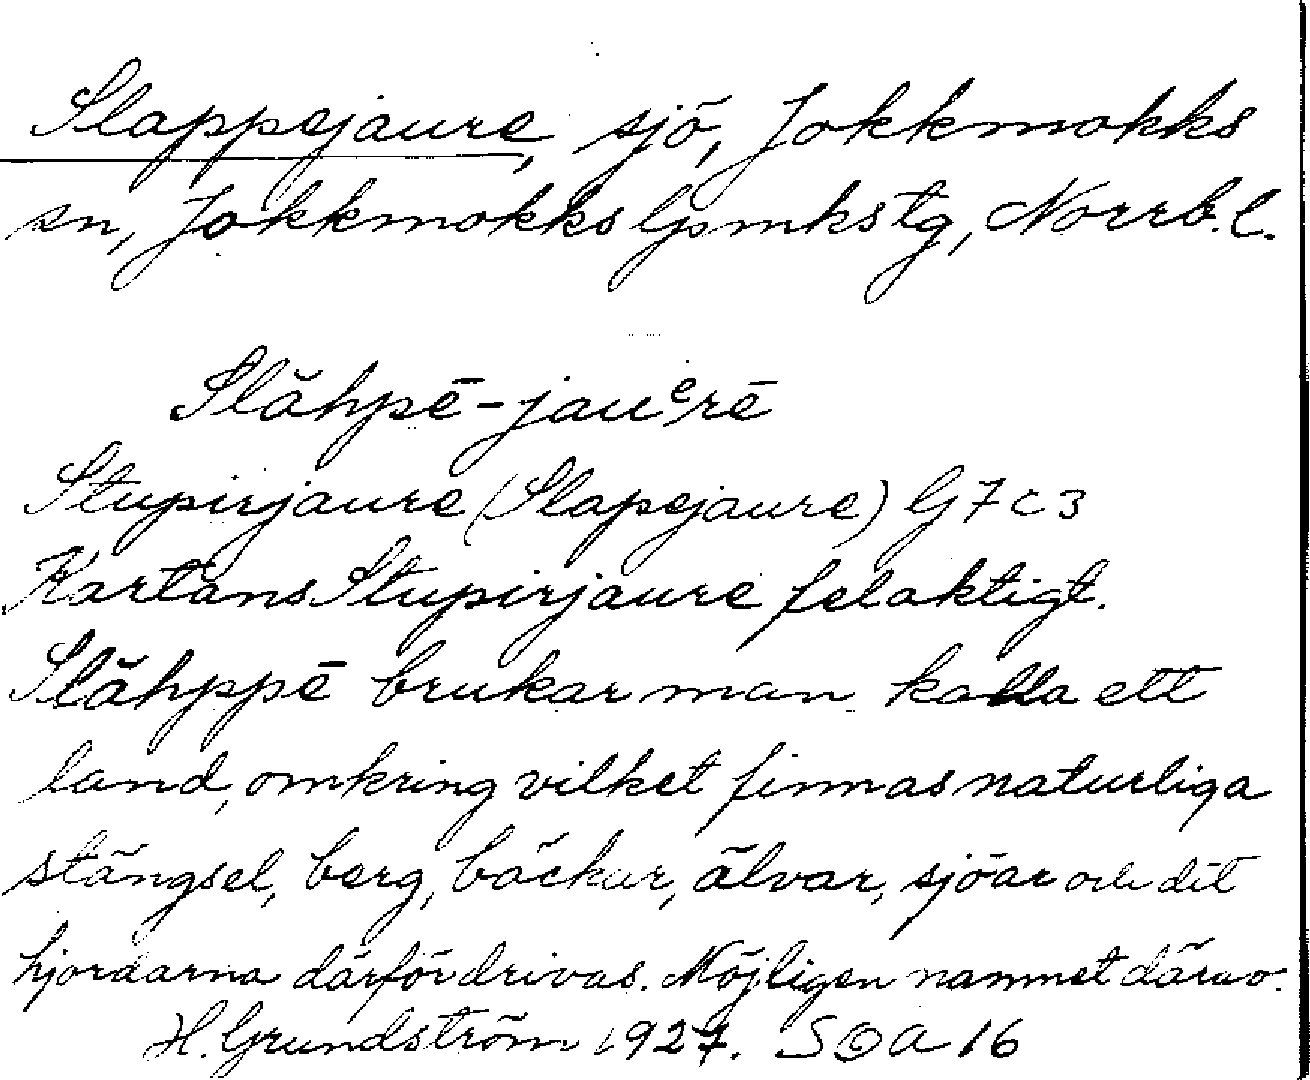 Slappejaure, sjö, Jokkmokks
sn, Jokkmokks lpmkstg, Norrb. l.
Slăhpē-jauᵉrē
Stupirjaure (Slapejaure) G7c3
Kartans Stupirjaure felaktigt.
Slăhppē brukar man kalla ett
land, omkring vilket finnas naturliga
stängsel, berg, bäckar, älvar, sjöar och dit
hjordarna därför drivas. Möjligen namnet därav.
H. Grundström 1927. SOA 16